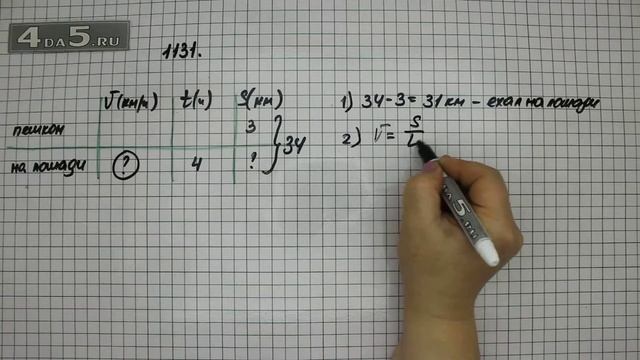 4DA5.RU
1131.
V(км/ч) t(ч) S(км)
пешком 3
на лошади ? 4 ? 34
1) 34-3=31 км - ехал на лошади
2) V= S
4DA5.RU